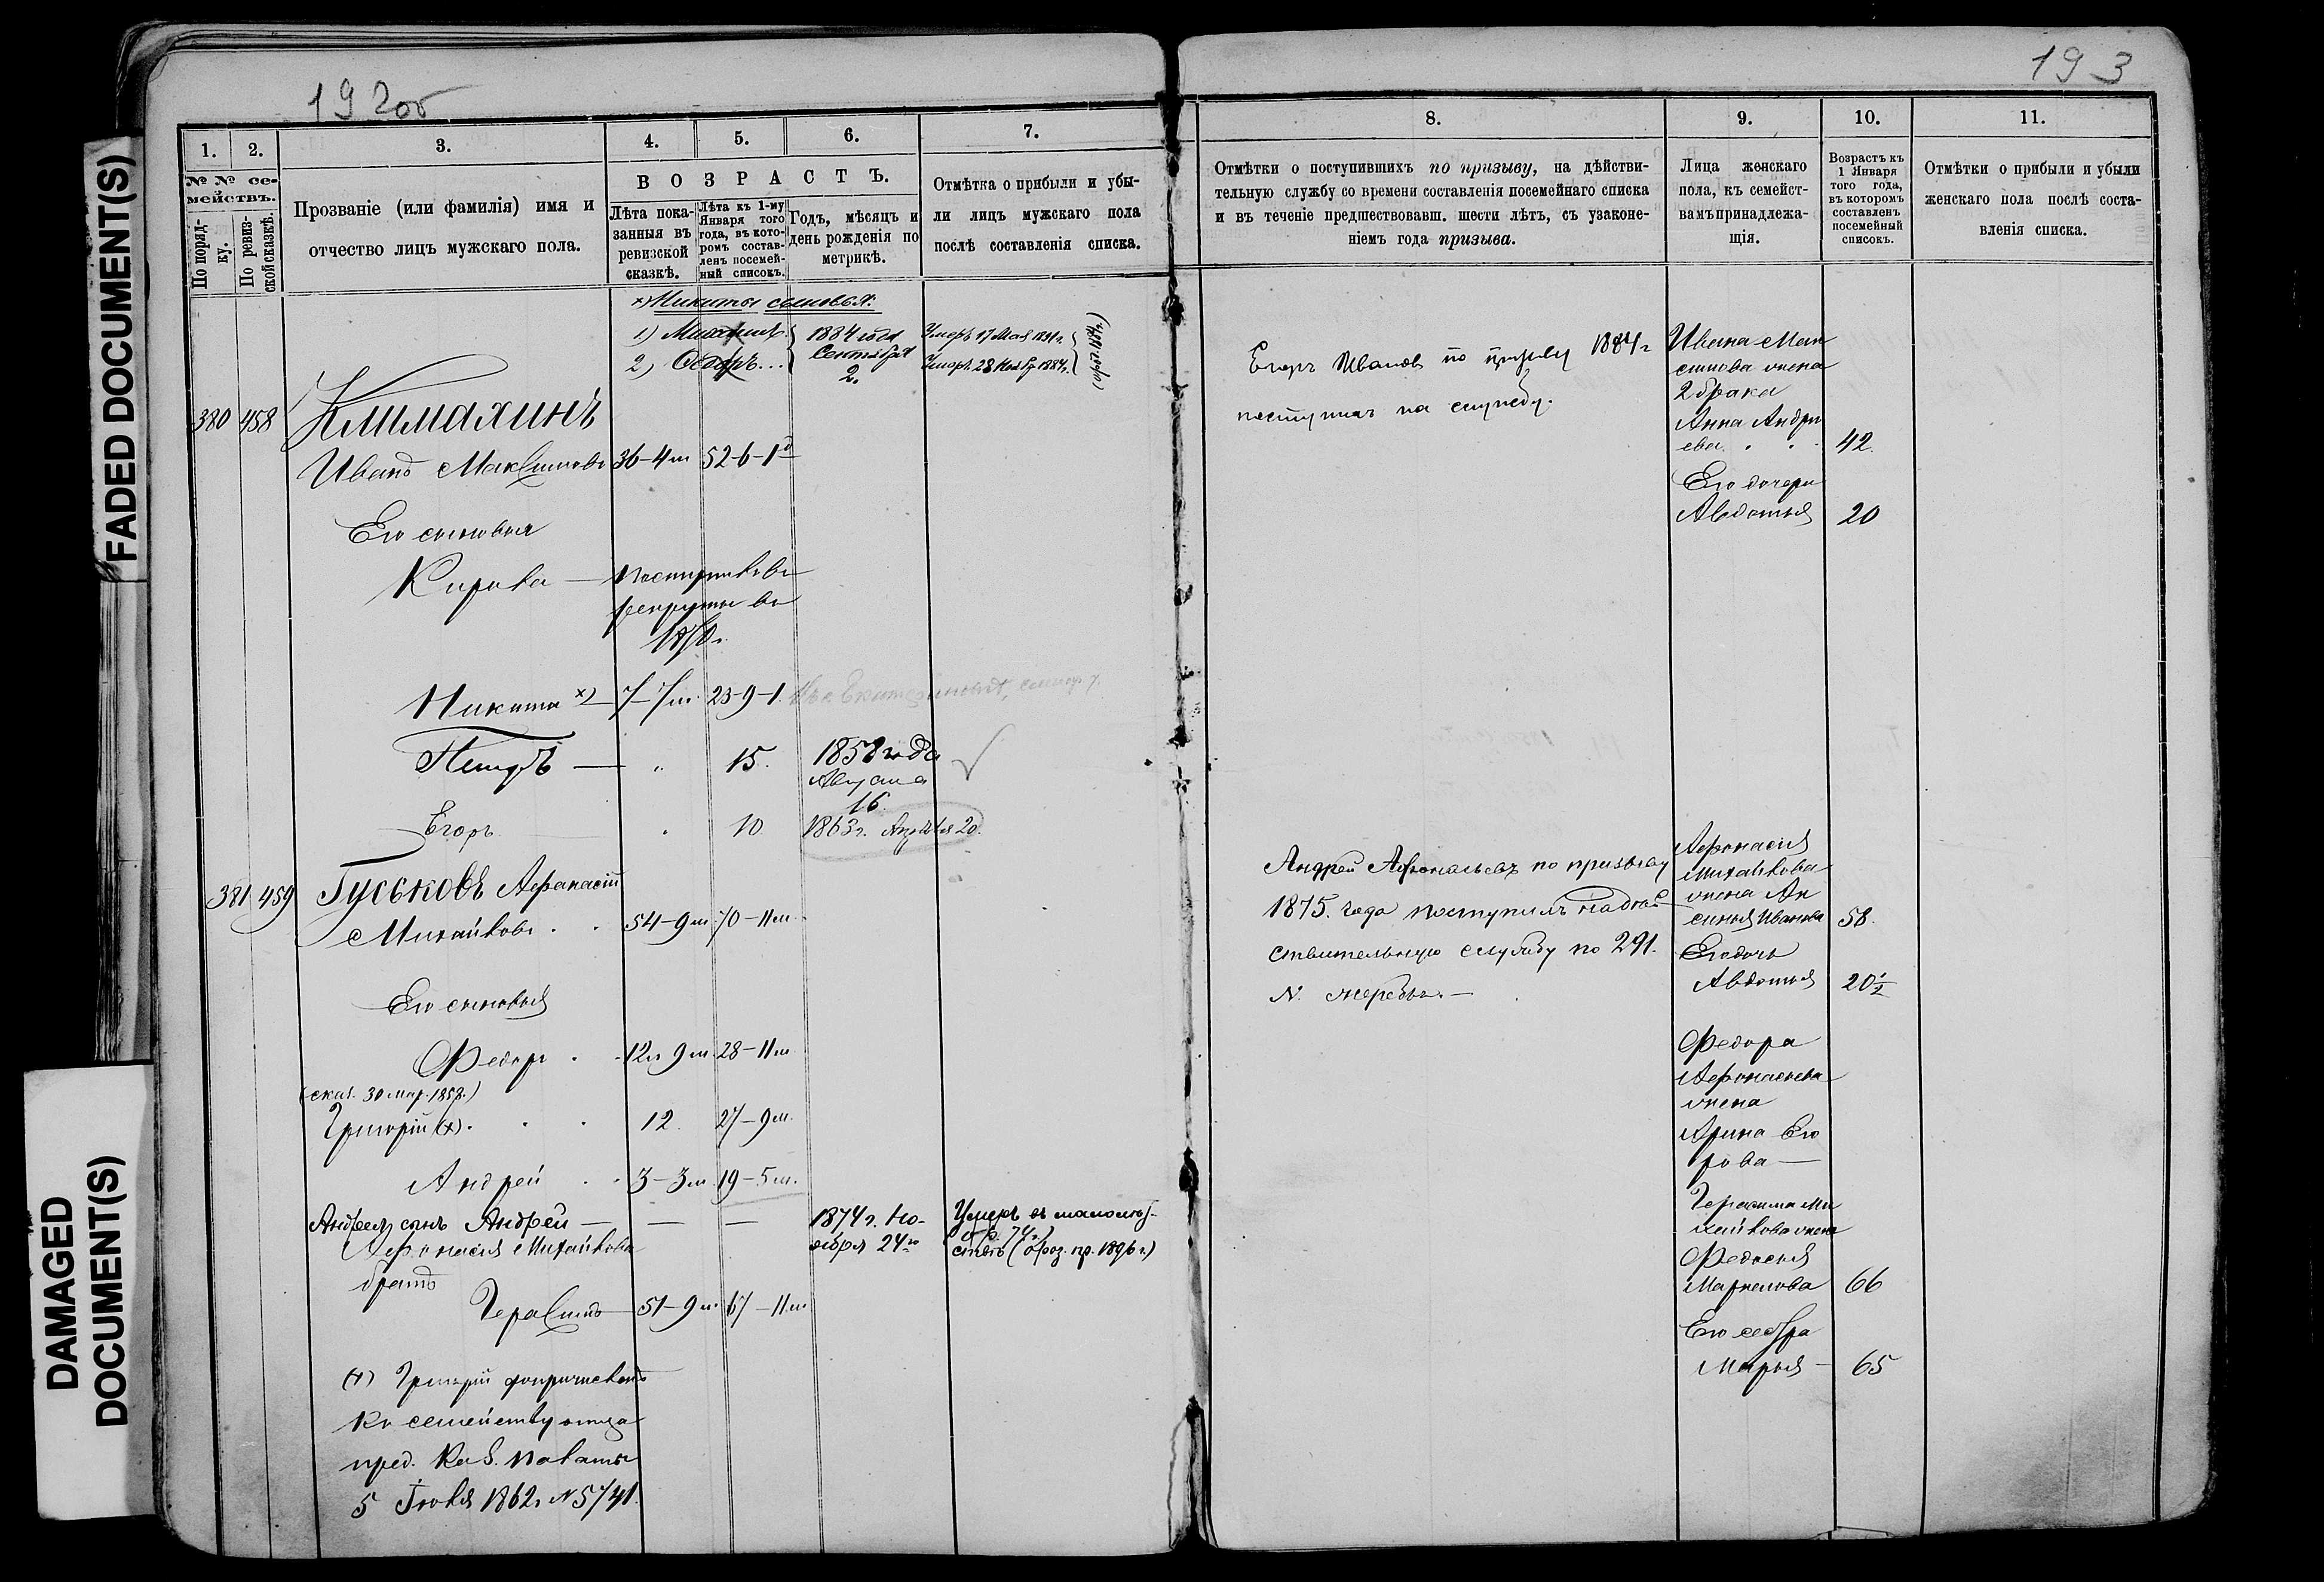 FADED DOCUMENT(S)
DAMAGED
DOCUMENT(S)
192об
1.
2.
3.
4.
5.
6.
7.
№ № се-
мействъ.
По поряд-
ку.
По ревиз-
ской сказкѣ.
Прозваніе (или фамилія) имя и
отчество лицъ мужскаго пола.
ВОЗРАСТЪ.
Лѣта пока-
занныя въ
ревизской
сказкѣ.
Лѣта къ 1-му
Января того
года, въ кото-
ромъ состав-
ленъ посемей-
ный списокъ.
Годъ, мѣсяцъ и
день рожденія по
метрикѣ.
Отмѣтка о прибыли и убы-
ли лицъ мужскаго пола
послѣ составленія списка.
х) Никиты сыновья:
1.) Михаилъ
2) Ѳедоръ...
1884 года
Сентября
2.
Умеръ 17 Мая 1891 г.
Умеръ 28 Нояб. 1884 г.
380 458
Климахинъ
Иванъ Максимовъ 36-4м 52-6-1д
Его сыновья
Кирила — Поступилъ въ
рекруты въ
1870 г.
Никита х) 7-7м. 23-9-1.
Петръ — „ 15. 1858 года
Августа
16
Егоръ 10 1863 г. Апрѣля 20.
381 459 Гуськовъ Афанасій
Михайловъ . . 54-9м 70-11м.
Его сыновья
Федоръ . 12л 9м. 28-11м.
30 мар. 1858.)
Григорій (х) . . . 12. 27-9м.
Андрей . . 3-3м. 19-5м.
Андрея сынъ Андрей — — — 1874 г. Но-
ября 24го
Умеръ въ малолѣт-
ствѣ пр. 1896 г.)
Афонасія Михайлова
братъ
Герасимъ 51-9м. 67-11м.
(х) Григорій допричисленъ
къ семейству отца
пред. Каз. Палаты
5 Іюля 1862 г. № 5741.
193
8.
9.
10.
11.
Отмѣтки о поступившихъ по призыву, на дѣйстви-
тельную службу со времени составленія посемейнаго списка
и въ теченіе предшествовавш. шести лѣтъ, съ узаконе-
ніемъ года призыва.
Лица женскаго
пола, къ семейст-
вамъ принадлежа-
щія.
Возрастъ къ
1 Января
того года,
въ которомъ
составленъ
посемейный
списокъ.
Отмѣтки о прибыли и убыли
женскаго пола послѣ соста-
вленія списка.
Егоръ Ивановъ по призыву 1884 г
поступилъ на службу.
Ивана Мак
симова жена
2 брака
Анна Андре
ева . . 42.
Его дочери
Авдотья 20
Андрей Афонасьевъ по призыву
1875. года поступилъ на дѣй
ствительную службу по 291.
№ жеребья. —
Афонасія
Михайлова
жена Ак
синья Иванова 58.
Его дочь
Авдотья 20½
Федора
Афонасьева
жена
Арина Его
рова —
Герасима Ми
хайлова жена
Федосья
Маркелова 66
Его сестра
Марья — 65